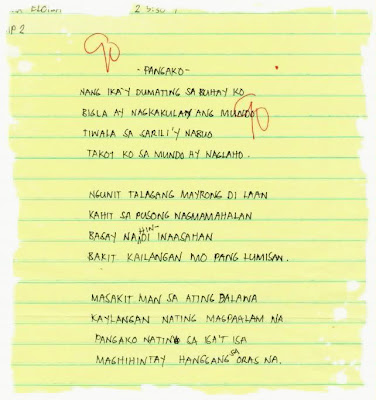 IP 2
90
-PANGAKO-
NANG IKA'Y DUMATING SA BUHAY KO
BIGLA AY NAGKAKULAY ANG MUNDO
90
TIWALA SA SARILI'Y NABUO
TAKOT KO SA MUNDO AY NAGLAHO.
NGUNIT TALAGANG MAYRONG DI LAAN
KAHIT SA PUSONG NAGMAMAHALAN
BAGAY NA HIN-DI INAASAHAN
BAKIT KAILANGAN MO PANG LUMISAN.
MASAKIT MAN SA ATING DALAWA
KAYLANGAN NATING MAGPAALAM NA
PANGAKO NATING SA ISA'T ISA
MAGHIHINTAY HANGGANG SA ORAS NA.